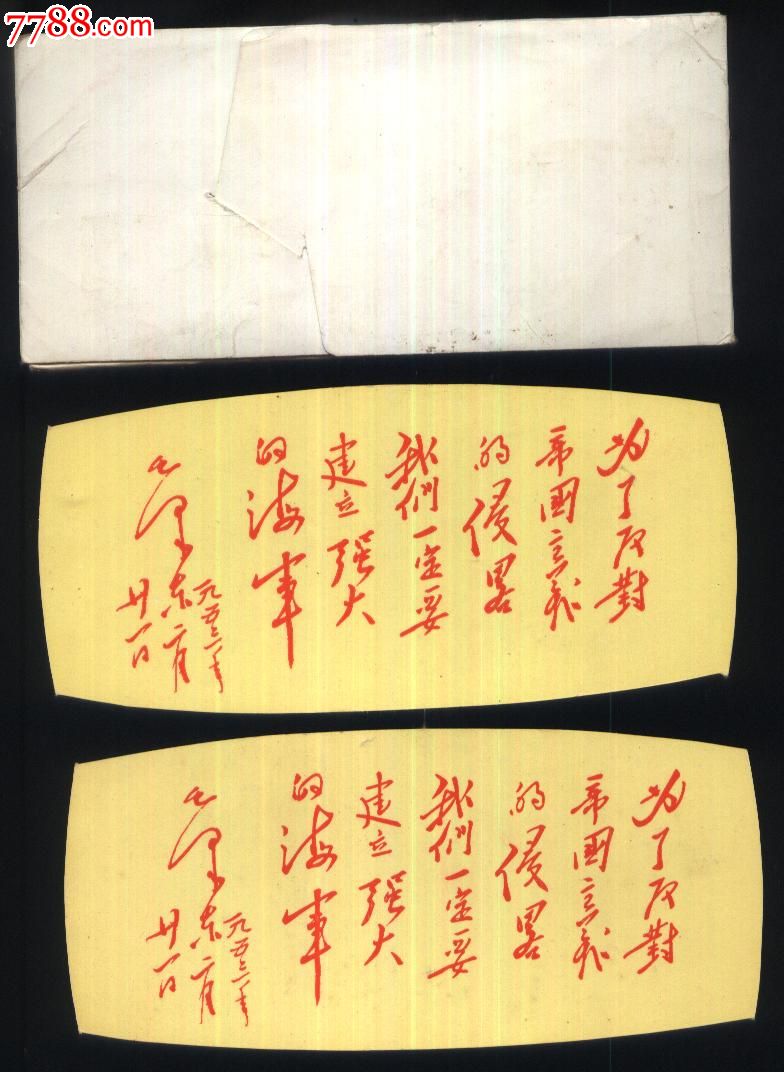 7788.com
中国收藏热线
为了反對
帝國主義
的侵畧
我們一定要
建立强大
的海軍
毛澤东
一九五三年
二月
廿一日
为了反對
帝國主義
的侵畧
我們一定要
建立强大
的海軍
毛澤东
一九五三年
二月
廿一日